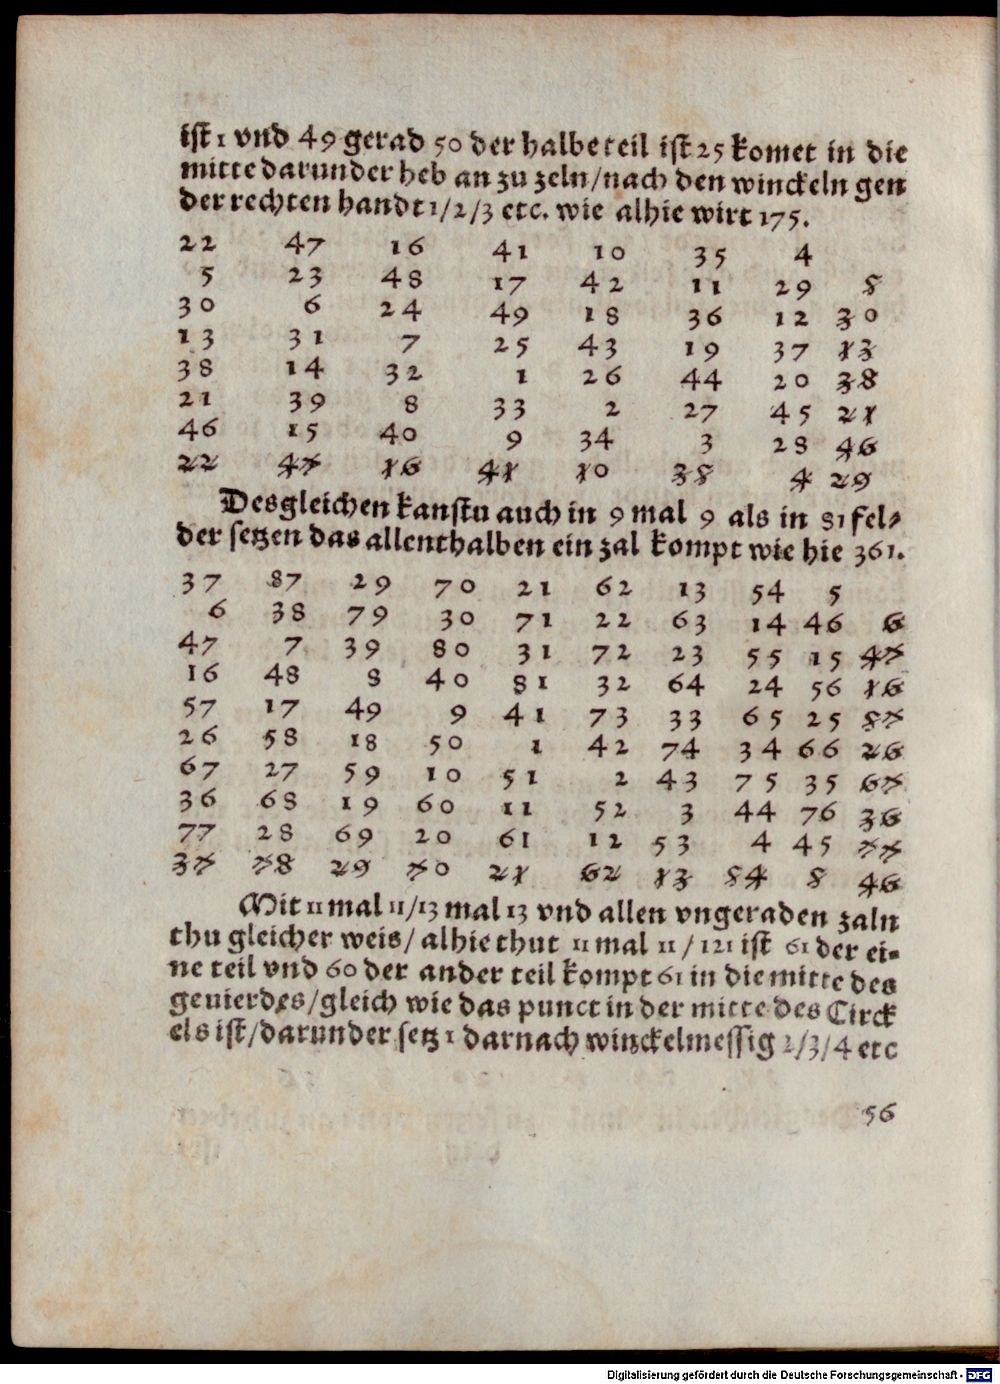 ist 1 vnd 49 gerad 50 der halbe teil ist 25 komet in die
mitte darunder heb an zu zeln/nach den winckeln gen
der rechten handt 1/2/3 etc. wie alhie wirt 175.
22 47 16 41 10 35 4
5 23 48 17 42 11 29 5
30 6 24 49 18 36 12 30
13 31 7 25 43 19 37 13
38 14 32 1 26 44 20 38
21 39 8 33 2 27 45 21
46 15 40 9 34 3 28 46
22 47 16 41 10 35 4 29
Desgleichen kanstu auch in 9 mal 9 als in 81 fel⸗
der setzen das allenthalben ein zal kompt wie hie 361.
37 87 29 70 21 62 13 54 5
6 38 79 30 71 22 63 14 46 6
47 7 39 80 31 72 23 55 15 47
16 48 8 40 81 32 64 24 56 16
57 17 49 9 41 73 33 65 25 57
26 58 18 50 1 42 74 34 66 26
67 27 59 10 51 2 43 75 35 67
36 68 19 60 11 52 3 44 76 36
77 28 69 20 61 12 53 4 45 77
37 78 29 70 21 62 13 54 5 46
Mit 11 mal 11/13 mal 13 vnd allen vngeraden zaln
thu gleicher weis/ alhie thut 11 mal 11/ 121 ist 61 der ei⸗
ne teil vnd 60 der ander teil kompt 61 in die mitte des
geuierdes/gleich wie das punct in der mitte des Circk
els ist/darunder setz 1 darnach wintzckelmessig 2/3/4 etc
56
Digitalisierung gefördert durch die Deutsche Forschungsgemeinschaft - DFG